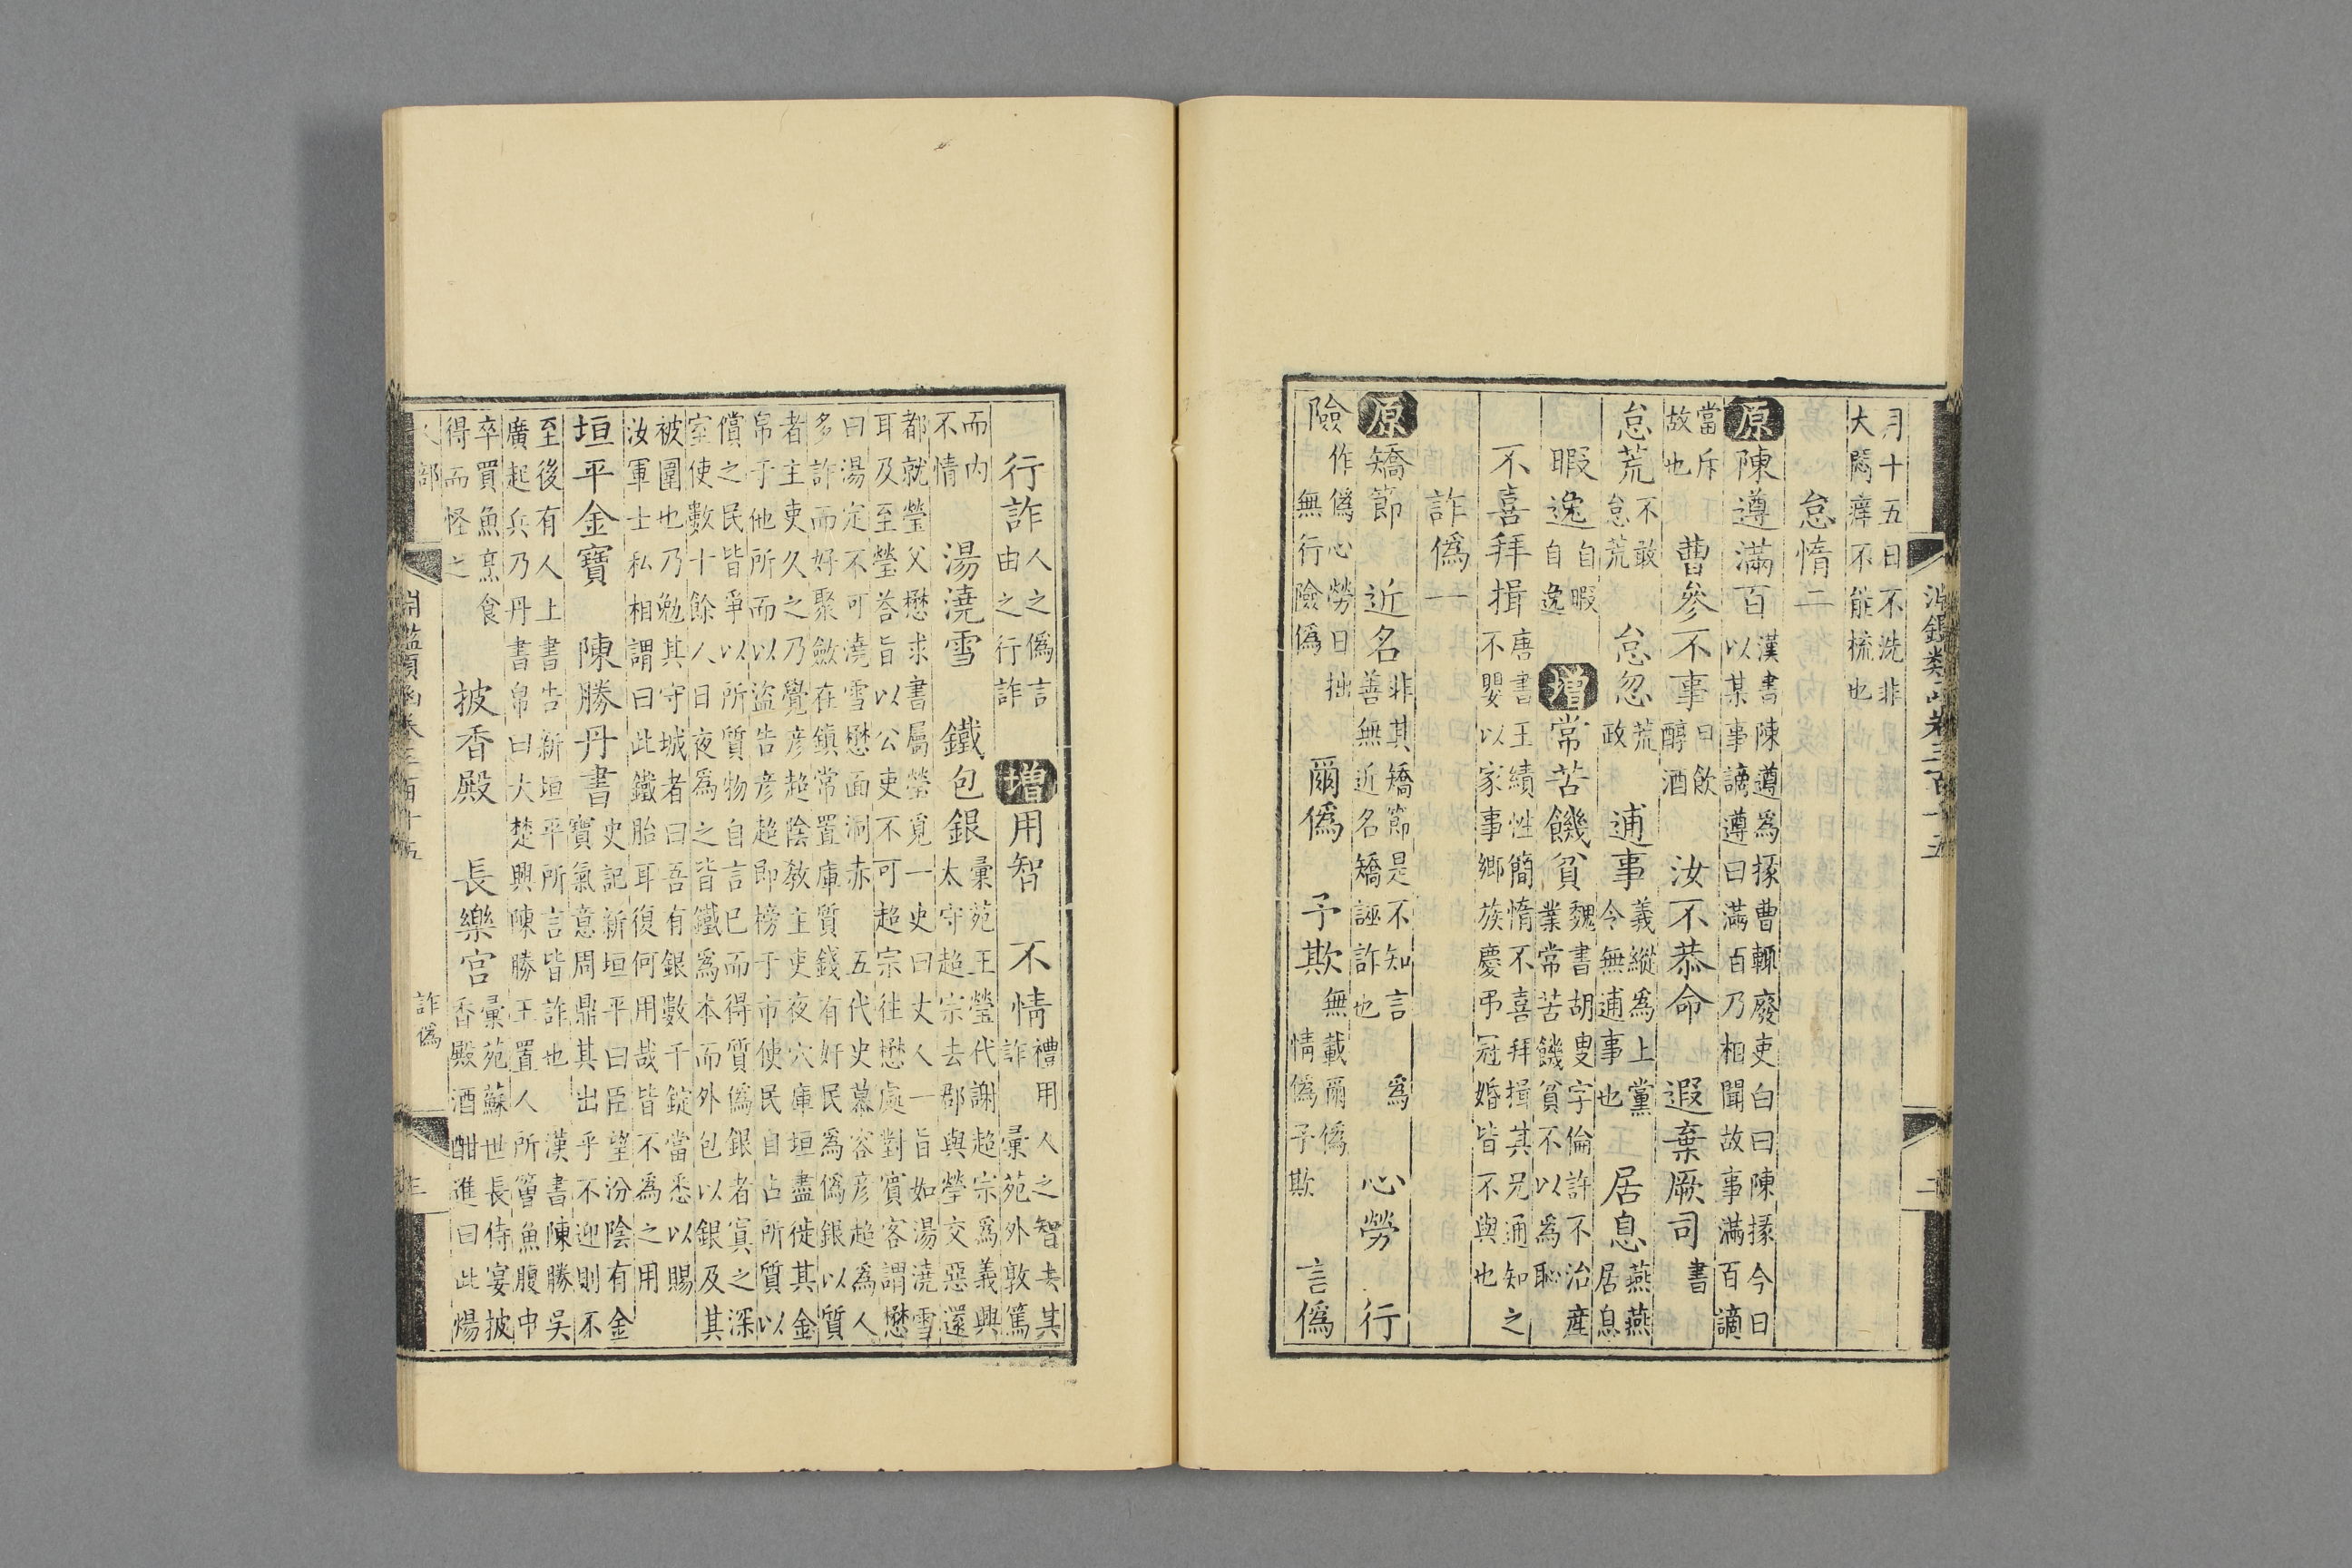 淵鑑類函卷三百十五 二
月十五日不洗非
大悶癢不能梳也
怠惰二
原陳遵滿百 漢書陳遵為掾曹輒廢吏白曰陳掾今日
以某事謫遵曰滿百乃相聞故事滿百謫
當斥故也 曹參不事 日飲醇酒 汝不恭命 遐棄厥司 書
怠荒 不敢怠荒 怠忽 荒政 逋事 義縱為上黨令無逋事也 居息 燕燕居息
暇逸 自暇自逸 增常苦饑貧 魏書胡叟字倫許不治產業常苦饑貧不以為恥
不喜拜揖 唐書王績性簡惰不喜拜揖其兄通知之不嬰以家事鄉族慶弔冠婚皆不與也
詐僞一
原矯節 近名 非其矯節是不知言 為善無近名矯誣詐也 心勞 行
險 作僞心勞日拙 無行險僞 爾僞 予欺 無載爾僞 情僞子欺 言僞
行詐 人之僞言由之行詐 增用智 不情 禮用人之智去其詐 彙苑外敦篤
而内不情 湯澆雪 鐵包銀 彙苑王瑩代謝超宗為義興太守超宗去郡與瑩交惡還
都就瑩父懋求書屬瑩覓一吏曰丈人一旨如湯澆雪
耳及至瑩荅旨以公吏不可超宗往懋處對賓客謂懋
曰湯定不可澆雪懋面洞赤 五代史慕容彦超為人
多詐而好聚斂在鎮常置庫質錢有奸民為僞銀以質
者主吏久之乃覺彦超陰敎主吏夜穴庫垣盡徙其金
帛于他所而以盜告彦超即榜于市使民自占所質以
償之民皆爭以所質物自言已而得質僞銀者寘之深
室使數十餘人日夜為之皆鐵為本而外包以銀及其
被圍也乃勉其守城者曰吾有銀數千錠當悉以賜
汝軍士私相謂曰此鐵胎耳復何用哉皆不為之用
垣平金寶 陳勝丹書 史記新垣平曰臣望汾陰有金寶氣意周鼎其出乎不迎則不
至後有人上書告新垣平所言皆詐也 漢書陳勝吳
廣起兵乃丹書帛曰大楚興陳勝王置人所罾魚腹中
卒買魚烹食得而怪之 披香殿 長樂宫 彙苑蘇世長侍宴披香殿酒酣進曰此煬
人部 淵鑑類函卷三百十五 詐僞 三